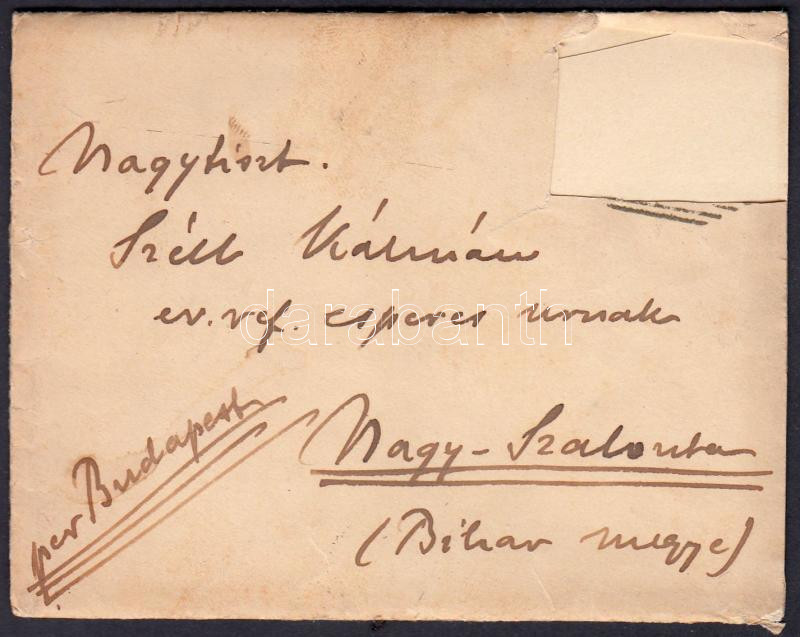 Nagytiszt.
Széll Kálmán
ev. ref. esperes urnak
darabanth
Nagy-Szalonta
(Bihar megye)
per Budapest